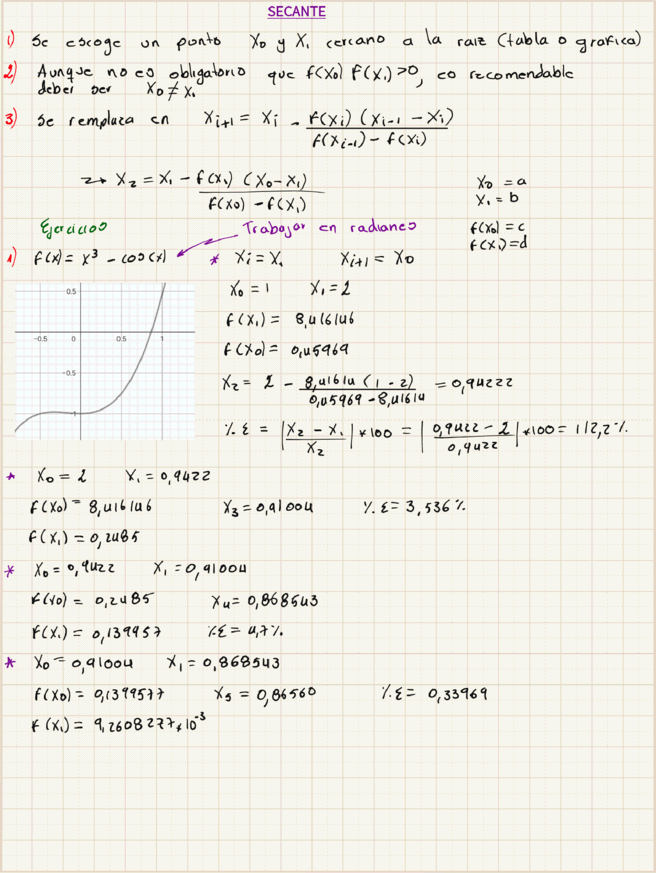 SECANTE
1) Se escoge un punto X₀ y X₁ cercano a la raiz (tabla o grafica)
2) Aunque no es obligatorio que f(X₀) F(X₁) >0, es recomendable
deber ser X₀ ≠ X₁
3) Se remplaza en Xᵢ₊₁ = Xᵢ - f(Xᵢ) (Xᵢ₋₁ - Xᵢ) / f(Xᵢ₋₁) - f(Xᵢ)
→ X₂ = X₁ - f(X₁) (X₀ - X₁) / f(X₀) - f(X₁)
X₀ = a
X₁ = b
f(X₀) = c
f(X₁) = d
Ejercicios
Trabajar en radianes
1) f(x) = x³ - cos(x)
* Xᵢ = X₁ Xᵢ₊₁ = X₀
0.5
-0.5 0 0.5 1
-0.5
-1
X₀ = 1 X₁ = 2
f(X₁) = 8,416146
f(X₀) = 0,45969
X₂ = 2 - 8,41614 (1 - 2) / 0,45969 - 8,41614 = 0,94222
% ε = |X₂ - X₁ / X₂| * 100 = |0,9422 - 2 / 0,9422| * 100 = 112,2%
* X₀ = 2 X₁ = 0,9422
f(X₀) = 8,416146 X₃ = 0,91004 % ε = 3,536 %
f(X₁) = 0,2485
* X₀ = 0,9422 X₁ = 0,91004
f(X₀) = 0,2485 X₄ = 0,868543
f(X₁) = 0,139957 % ε = 4,7%
* X₀ = 0,91004 X₁ = 0,868543
f(X₀) = 0,1399577 X₅ = 0,86560 % ε = 0,33969
f(X₁) = 9,2608277 * 10⁻³